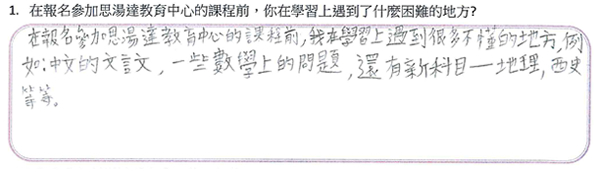 1. 在報名參加思湯達教育中心的課程前，你在學習上遇到了什麼困難的地方?
在報名參加思湯達教育中心的課程前,我在學習上遇到很多不懂的地方,例
如:中文的文言文,一些數學上的問題,還有新科目——地理,西史
等等。